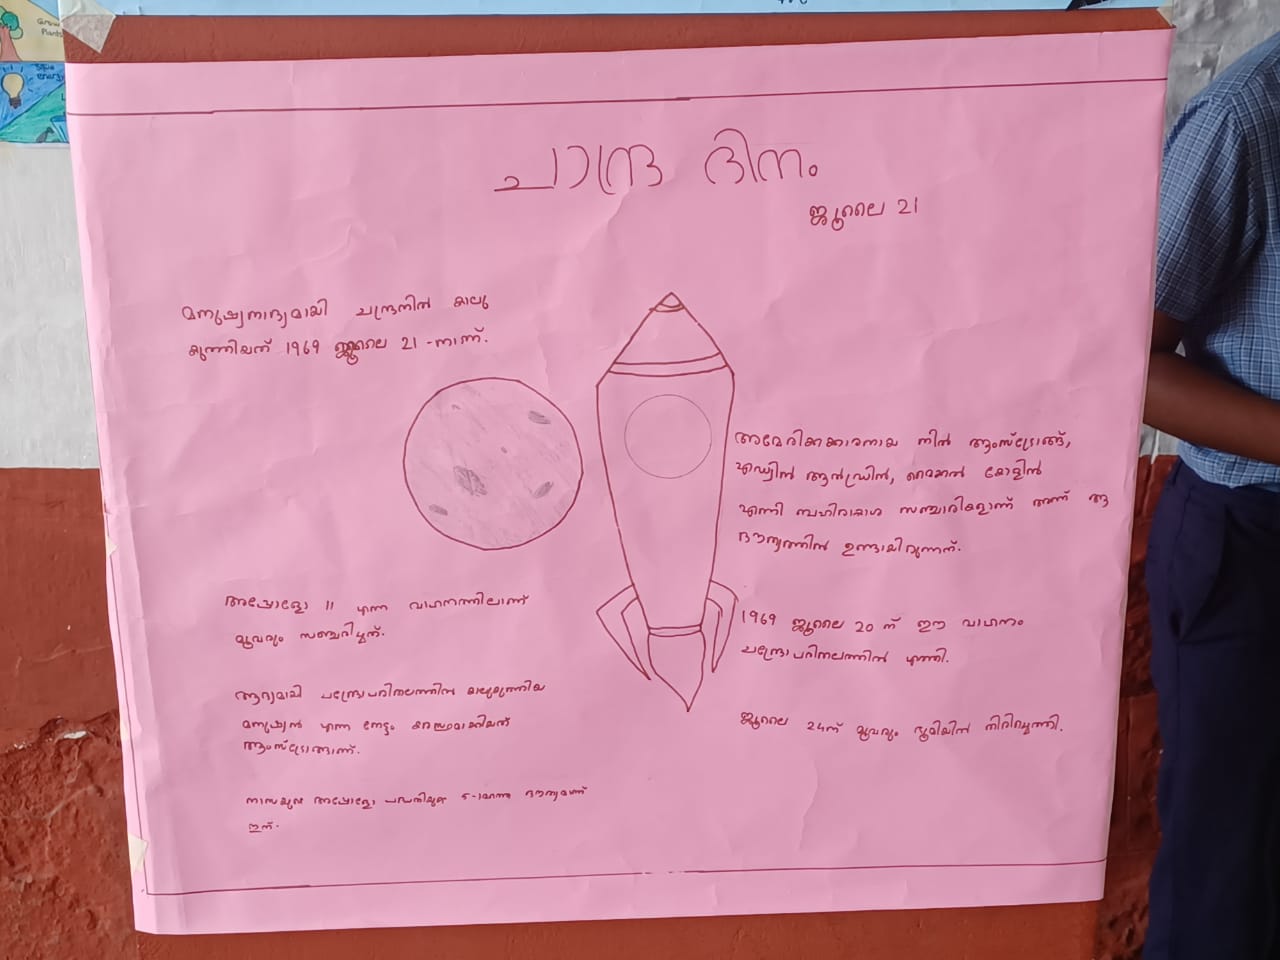 Grow Plants
Save energy
ചാന്ദ്ര ദിനം
ജൂലൈ 21
മനുഷ്യനാദ്യമായി ചന്ദ്രനിൽ കാലു
കുത്തിയത് 1969 ജൂലൈ 21 -നാണ്.
അമേരിക്കക്കാരനായ നിൽ ആംസ്ട്രോങ്ങ്,
എഡ്വിൻ ആൽഡ്രിൻ, മൈക്കൽ കോളിൻ
എന്നി ബഹിരാകാശ സഞ്ചാരികളാണ് അന്ന് ആ
ദൗത്യത്തിൽ ഉണ്ടായിരുന്നത്.
അപ്പോളോ 11 എന്ന വാഹനത്തിലാണ്
മൂവരും സഞ്ചരിച്ചത്.
1969 ജൂലൈ 20 ന് ഈ വാഹനം
ചന്ദ്രോപരിതലത്തിൽ എത്തി.
ആദ്യമായി ചന്ദ്രോപരിതലത്തിൽ കാലുകുത്തിയ
മനുഷ്യൻ എന്ന നേട്ടം കരസ്ഥമാക്കിയത്
ആംസ്ട്രോങ്ങാണ്.
ജൂലൈ 24ന് മൂവരും ഭൂമിയിൽ തിരിച്ചെത്തി.
നാസയുടെ അപ്പോളോ പദ്ധതിയുടെ 5-ാമത്തെ ദൗത്യമാണ്
ഇത്.